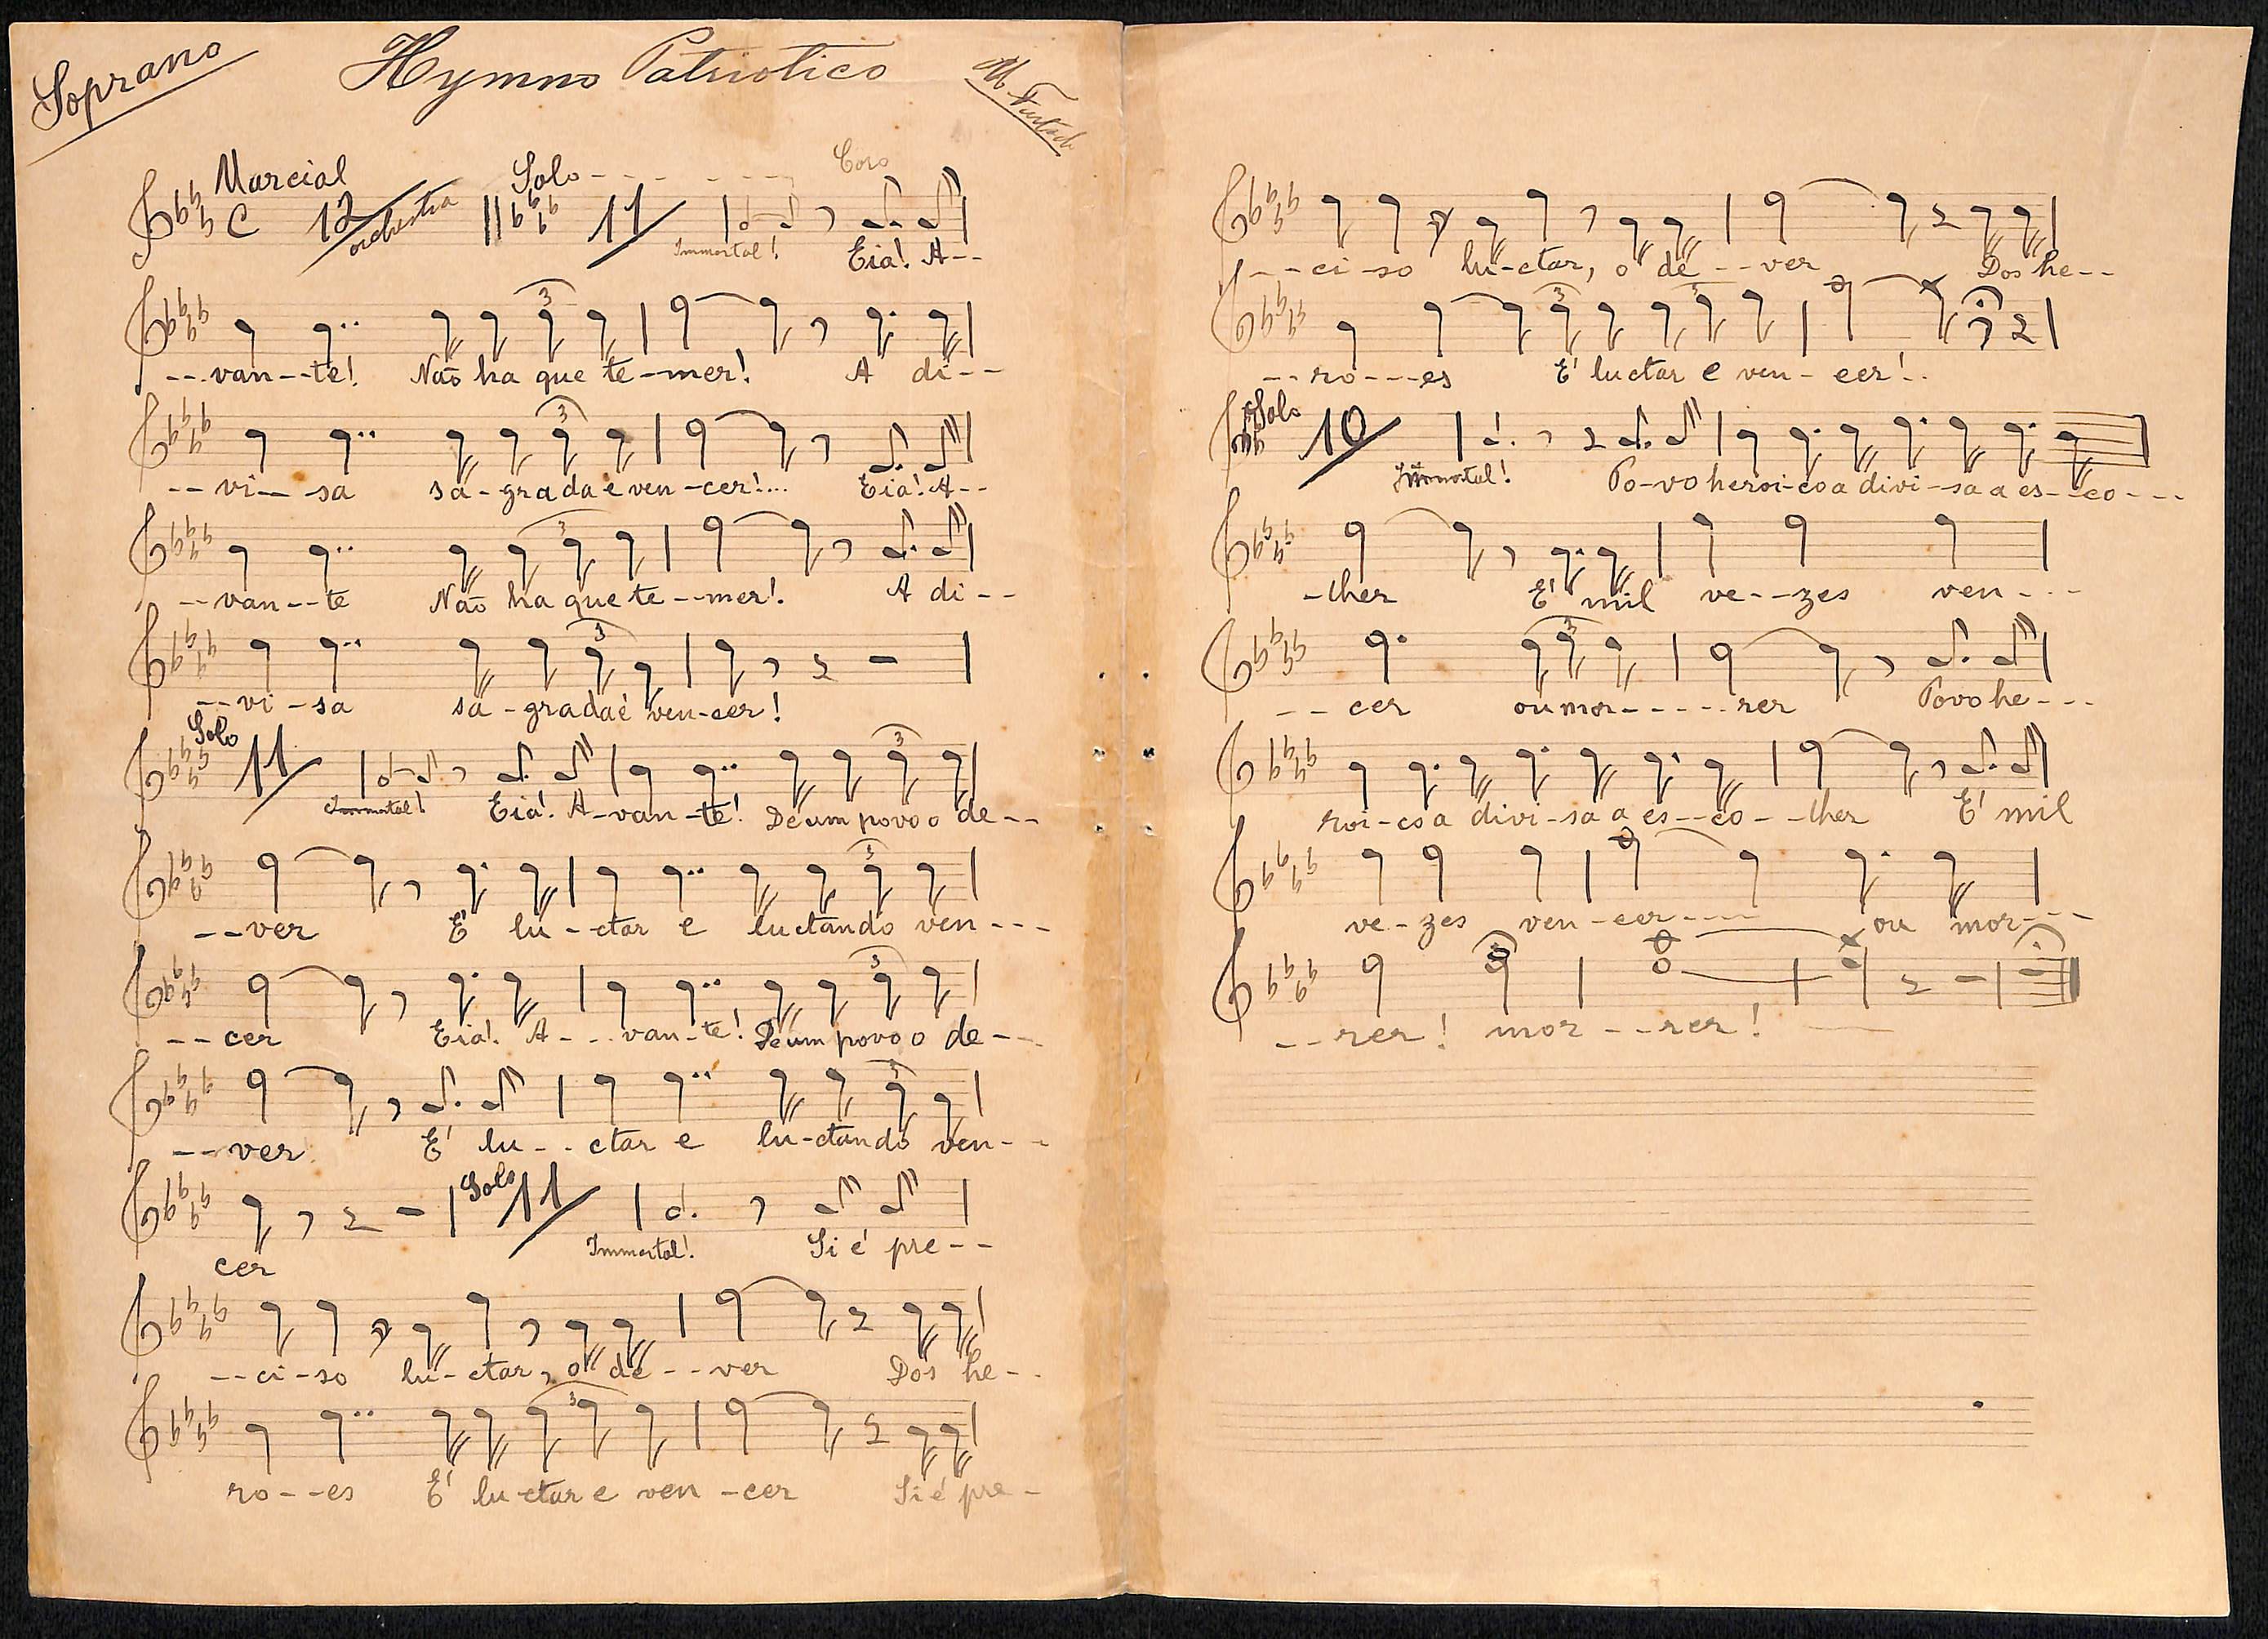 Soprano
Hymno Patriotico
M. Furtado
Marcial
Solo - - - - - - -
Coro
C 12 orchestra 11
Immortal! Eia! A--
--van--te! Não ha que te-mer! A di--
3
--vi--sa sa-grada é ven-cer!... Eia! A--
3
--van--te Não ha que te--mer! A di--
3
--vi-sa sa-grada é ven-cer!
3
Solo
11
Immortal! Eia! A-van-te! De um povo o de--
3
--ver E' lu-ctar e luctando ven---
3
--cer Eia! A---van-te! De um povo o de--
3
--ver E' lu--ctar e lu-ctando ven--
3
Solo 11
cer Immortal! Si é pre--
--ci-so lu-ctar, o de--ver Dos he--
3
ro--es E' lu-ctar e ven-cer Si é pre-
---ci-so lu-ctar, o de--ver Dos he--
3 3
--ro---es E' luctar e ven-cer!..
Solo
10
Immortal! Po-vo heroi-co a divi-sa a es--co---
-lher E' mil ve--zes ven---
3
--cer ou mor-----rer Povo he---
roi-co a divi-sa a es--co--lher E' mil
ve-zes ven-cer---- ou mor---
--rer! mor--rer!